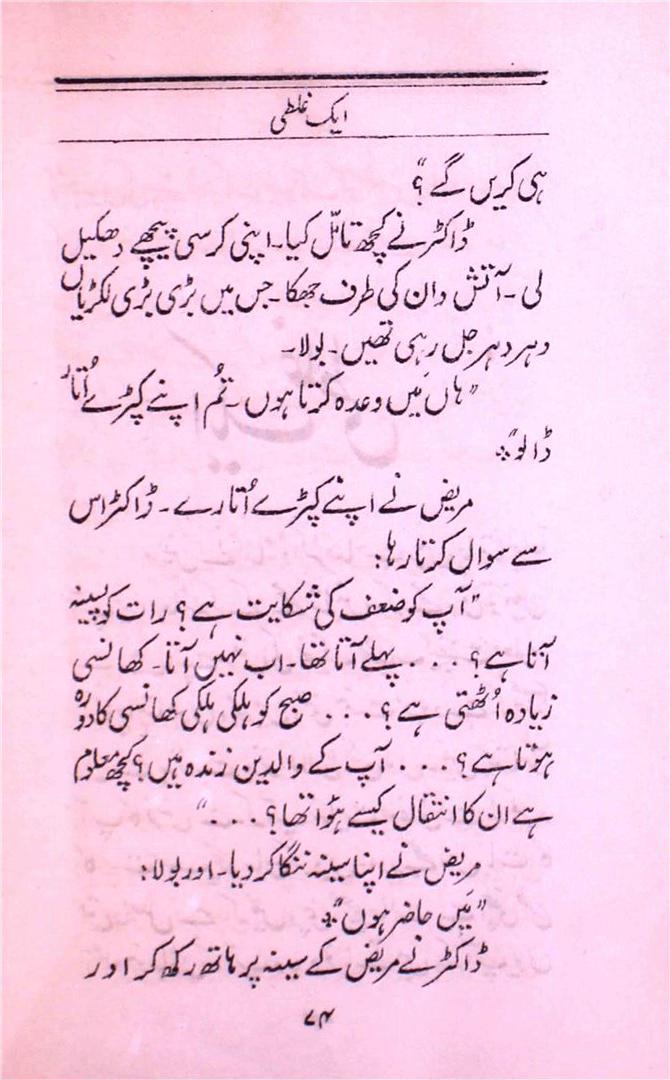 ایک غلطی
ہی کریں گے؟"
ڈاکٹر نے کچھ تامّل کیا۔ اپنی کرسی پیچھے دھکیل
لی۔ آتش دان کی طرف جھکا۔ جس میں بڑی بڑی لکڑیاں
دہر دہر جل رہی تھیں۔ بولا۔
"ہاں مَیں وعدہ کرتا ہوں۔ تُم اپنے کپڑے اُتار
ڈالو"۔
مریض نے اپنے کپڑے اُتارے۔ ڈاکٹر اس
سے سوال کرتا رہا:
"آپ کو ضعف کی شکایت ہے؟ رات کو پسینہ
آتا ہے؟ ... پہلے آتا تھا۔ اب نہیں آتا۔ کھانسی
زیادہ اُٹھتی ہے؟ ... صبح کو ہلکی ہلکی کھانسی کا دَورہ
ہوتا ہے؟ ... آپ کے والدین زندہ ہیں؟ کچھ معلوم
ہے ان کا انتقال کیسے ہؤا تھا؟ ..."
مریض نے اپنا سینہ ننگا کر دیا۔ اور بولا:
"مَیں حاضر ہوں"۔
ڈاکٹر نے مریض کے سینہ پر ہاتھ رکھ کر اور
۷۴